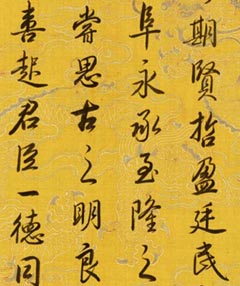 期賢哲盈廷民
阜永承至隆之
嘗思古之明良
喜起君臣一德同